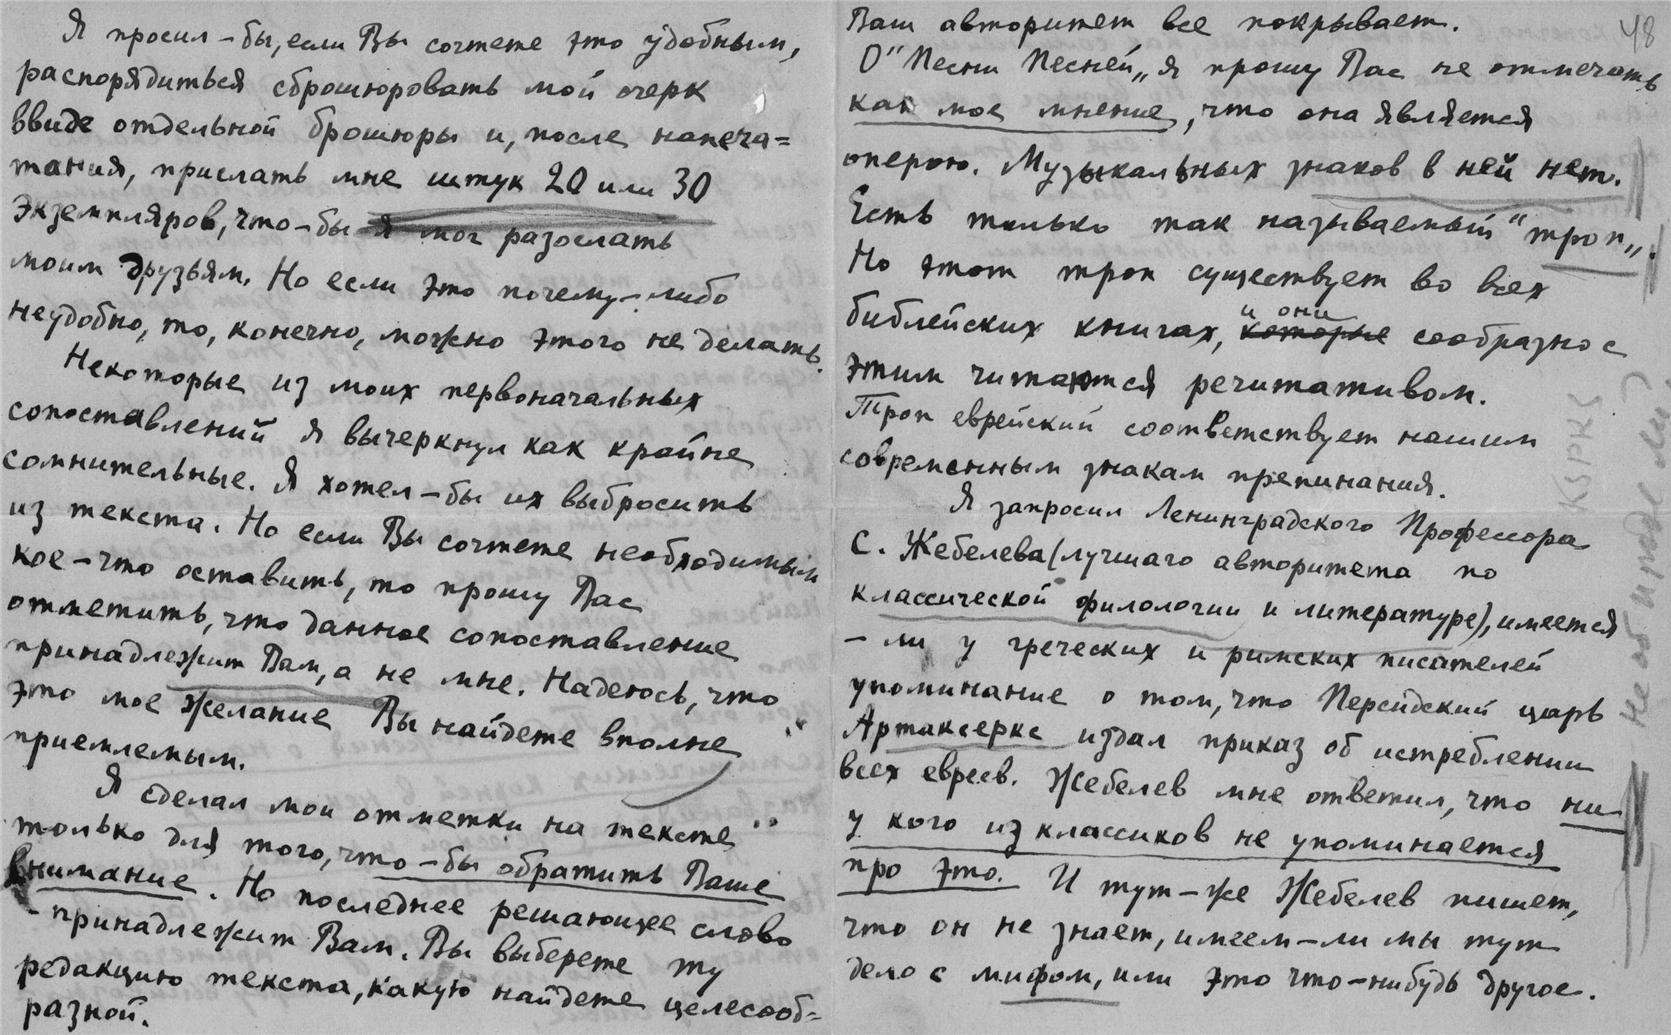 Я просил-бы, если Вы сочтете это удобным,
распорядиться сброшюровать мой очерк
ввиде отдельной брошюры и, после напеча=
тания, прислать мне штук 20 или 30
экземпляров, что-бы я мог разослать
моим друзьям. Но если это почему-либо
неудобно, то, конечно, можно этого не делать.
Некоторые из моих первоначальных
сопоставлений я вычеркнул как крайне
сомнительные. Я хотел-бы их выбросить
из текста. Но если Вы сочтете необходимым
кое-что оставить, то прошу Вас
отметить, что данное сопоставление
принадлежит Вам, а не мне. Надеюсь, что
это мое желание Вы найдете вполне
приемлемым.
Я сделал мои отметки на тексте
только для того, что-бы обратить Ваше
внимание. Но последнее решающее слово
- принадлежит Вам. Вы выберете ту
редакцию текста, какую найдете целесооб=
разной.
48
Ваш авторитет все покрывает.
О "Песни Песней„ я прошу Вас не отмечать
как мое мнение, что она является
оперою. Музыкальных знаков в ней нет.
Есть только так называемый "троп„.
Но этот троп существует во всех
библейских книгах, и они которые сообразно с
этим читаются речитативом.
Троп еврейский соответствует нашим
современным знакам препинания.
Я запросил Ленинградского Профессора
С. Жебелева (лучшаго авторитета по
классической филологии и литературе), имеется
- ли у греческих и римских писателей
упоминание о том, что Персидский царь
Артаксеркс издал приказ об истреблении
всех евреев. Жебелев мне ответил, что ни
у кого из классиков не упоминается
про это. И тут-же Жебелев пишет,
что он не знает, имеем-ли мы тут
дело с мифом, или это что-нибудь другое.